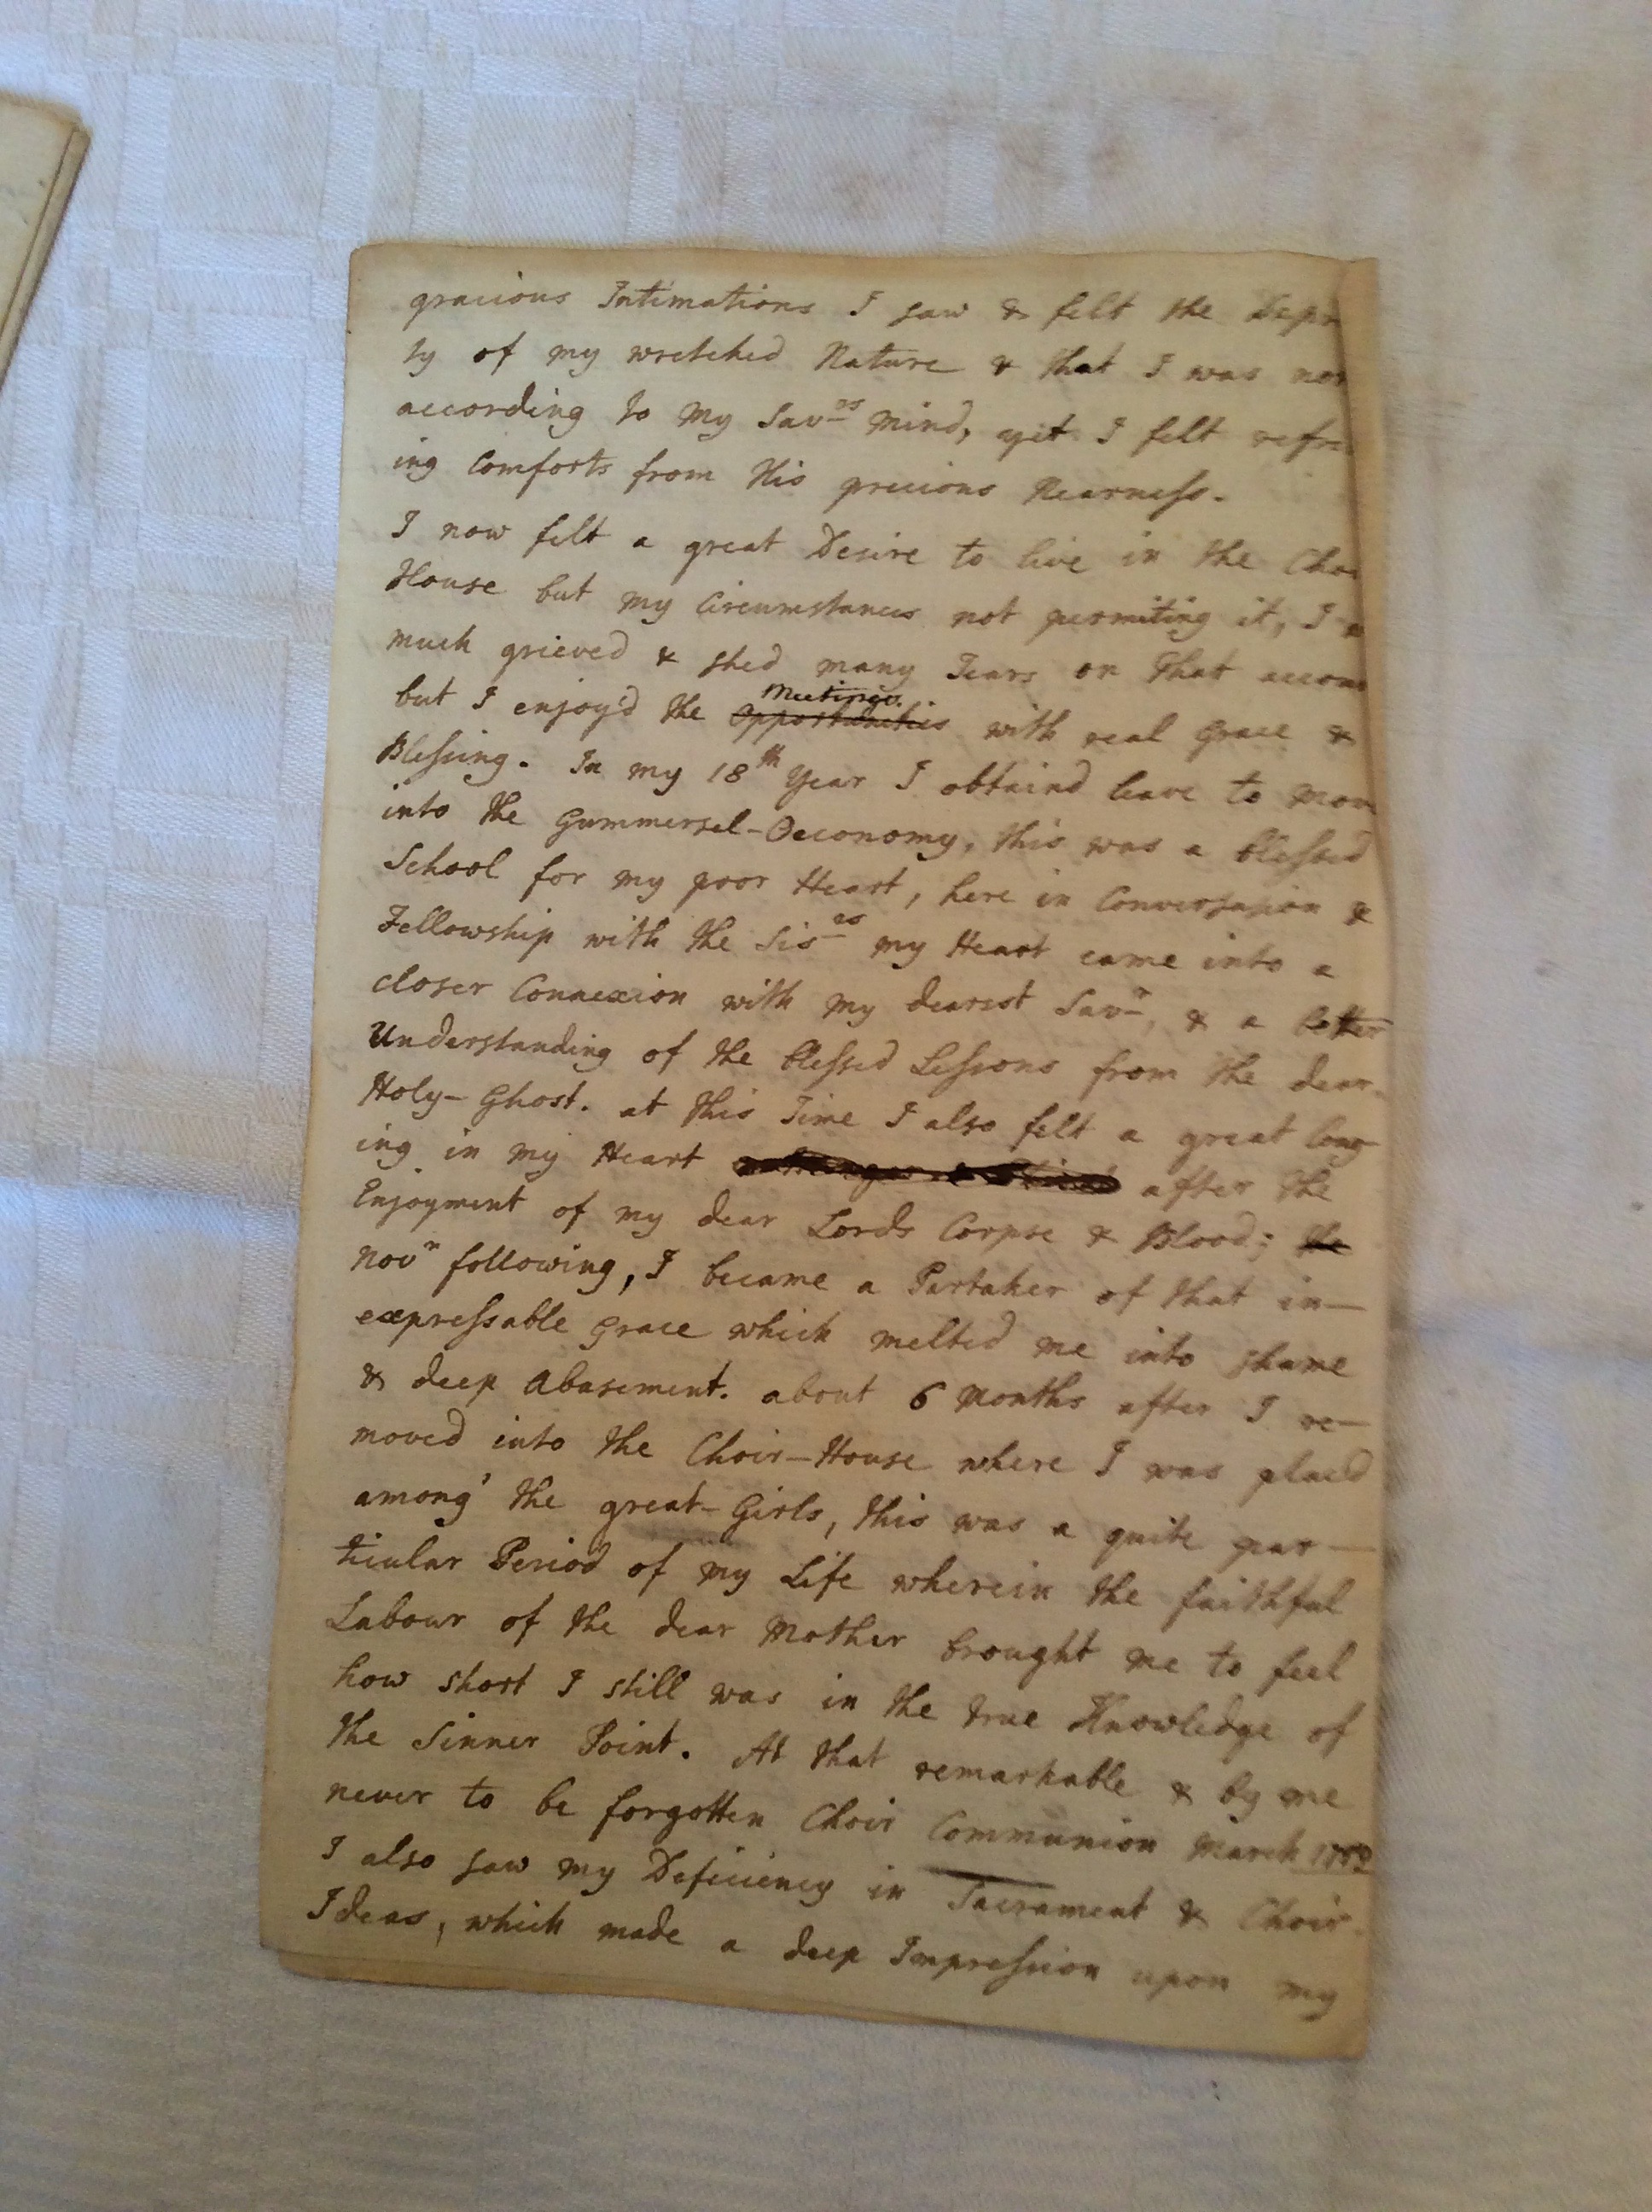 gracious Intimations I saw & felt the Depr
ty of my wretched Nature & that I was not
according to my Savrs mind, yet I felt refre
ing Comforts from His precious Nearness.
I now felt a great Desire to live in the Choi
House but my Circumstances not permiting it, I
much grieved & shed many Tears on that accou
Meetings.
but I enjoy'd the Opportunities with real Grace &
Blessing. In my 18th Year I obtaind leave to mov
into the Gummersel-Oeconomy, this was a blessed
School for my poor Heart, here in Conversation &
Fellowship with the Sisrs my Heart came into a
closer Connexion with my dearest Savr, & a better
Understanding of the blessed Lessons from the dear
Holy-Ghost. at this Time I also felt a great long
ing in my Heart after the
Enjoyment of my dear Lords Corpse & Blood; the
Novr following, I became a Partaker of that in-
expressable Grace which melted me into shame
& deep Abasement. about 6 Months after I re-
moved into the Choir-House where I was placed
among' the great-Girls, this was a quite par-
ticular Period of my Life wherein the faithful
Labour of the dear Mother brought me to feel
how short I still was in the true Knowledge of
the Sinner Point. At that remarkable & by me
never to be forgotten Choir Communion March
I also saw my Deficiency in Sacrament & Choir-
Ideas, which made a deep Impression upon my